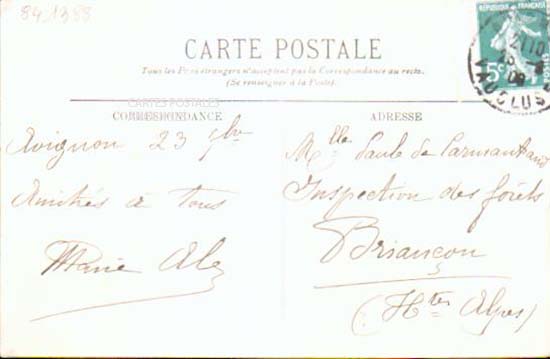 84 1388
RÉPUBLIQUE FRANÇAISE
CARTE POSTALE
Tous les Pays étrangers n'acceptent pas la Correspondance au recto.
(Se renseigner à la Poste).
CARTES POSTALES
CORRESPONDANCE
ADRESSE
5c
VAUCLUSE
Avignon 23 7bre
Amitiés à tous
Marie
Mlle Paule de
Inspection des forêts
Briançon
(Htes Alpes)